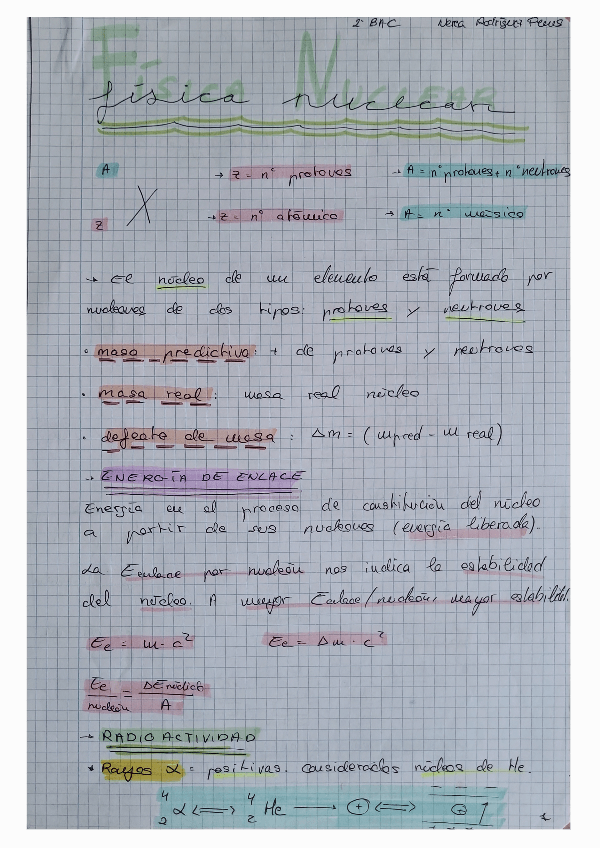 2º BAC
Física Nuclear
física nuclear
A → Z = nº protones → A = nº protones + nº neutrones
X
Z → Z = nº atómico → A = nº másico
→ El núcleo de un elemento está formado por
nucleones de dos tipos: protones y neutrones
• masa predictiva: + de protones y neutrones
• masa real: masa real núcleo
• defecto de masa: Δm = (m pred - m real)
→ ENERGÍA DE ENLACE
Energía en el proceso de constitución del núcleo
a partir de sus nucleones (energía liberada).
La Eenlace por nucleón nos indica la estabilidad
del núcleo. A mayor Eenlace/nucleón, mayor estabilidad.
Ee = m · c² Ee = Δm · c²
Ee/nucleón = ΔE núcleo/A
→ RADIOACTIVIDAD
* Rayos α = positivas. considerados núcleos de He.
⁴₂α ⟺ ⁴₂He ⟶ ⊕ ⟺ ⊕
1